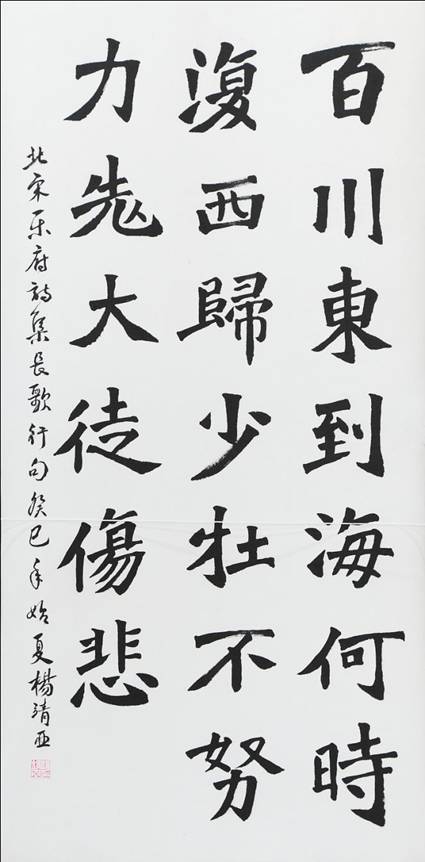 百川東到海何時
復西歸少牡不努
力老大徒傷悲
北宋乐府詩集長歌行句癸巳年始夏楊靖亚